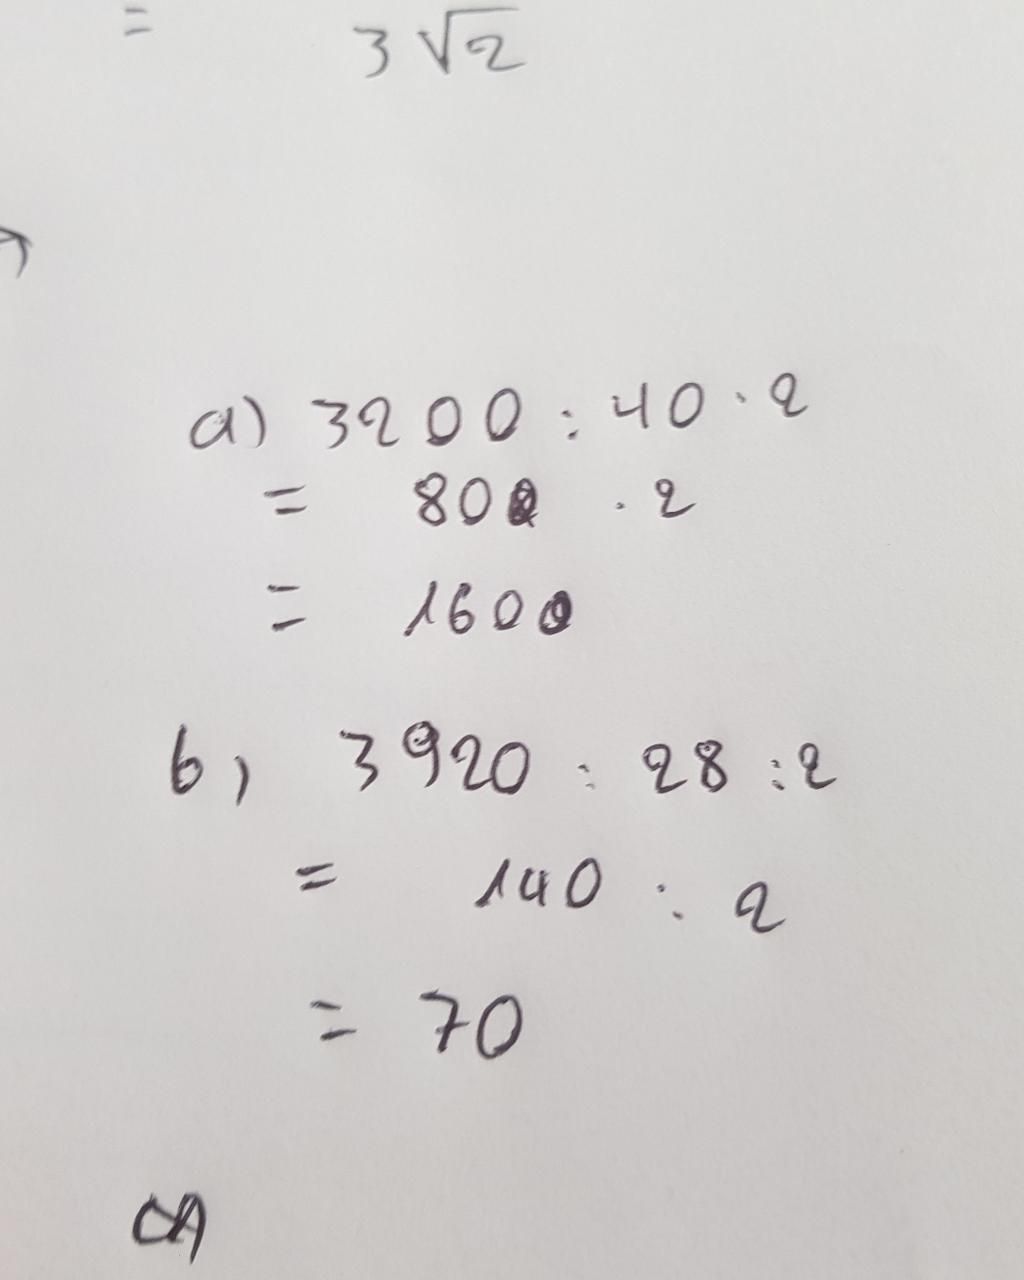 = 3√2
a) 3200 : 40 · 2
= 80 · 2
= 160
b) 3920 : 28 : 2
= 140 : 2
= 70